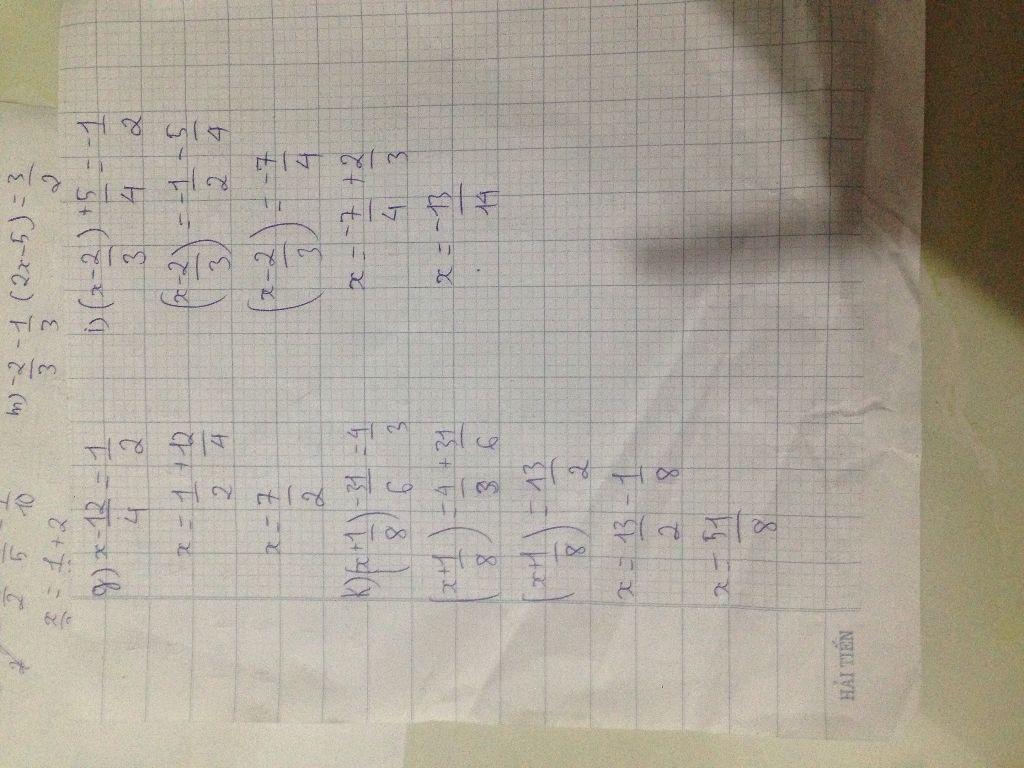 m) -2/3 - 1/3 (2x-5) = 3/2
g) x - 12/4 = 1/2
x = 1/2 + 12/4
x = 7/2
k) (x + 1/8) - 31/6 = 4/3
(x + 1/8) = 4/3 + 31/6
(x + 1/8) = 13/2
x = 13/2 - 1/8
x = 51/8
i) (x - 2/3) + 5/4 = -1/2
(x - 2/3) = -1/2 - 5/4
(x - 2/3) = -7/4
x = -7/4 + 2/3
x = -13/14
HẢI TIẾN